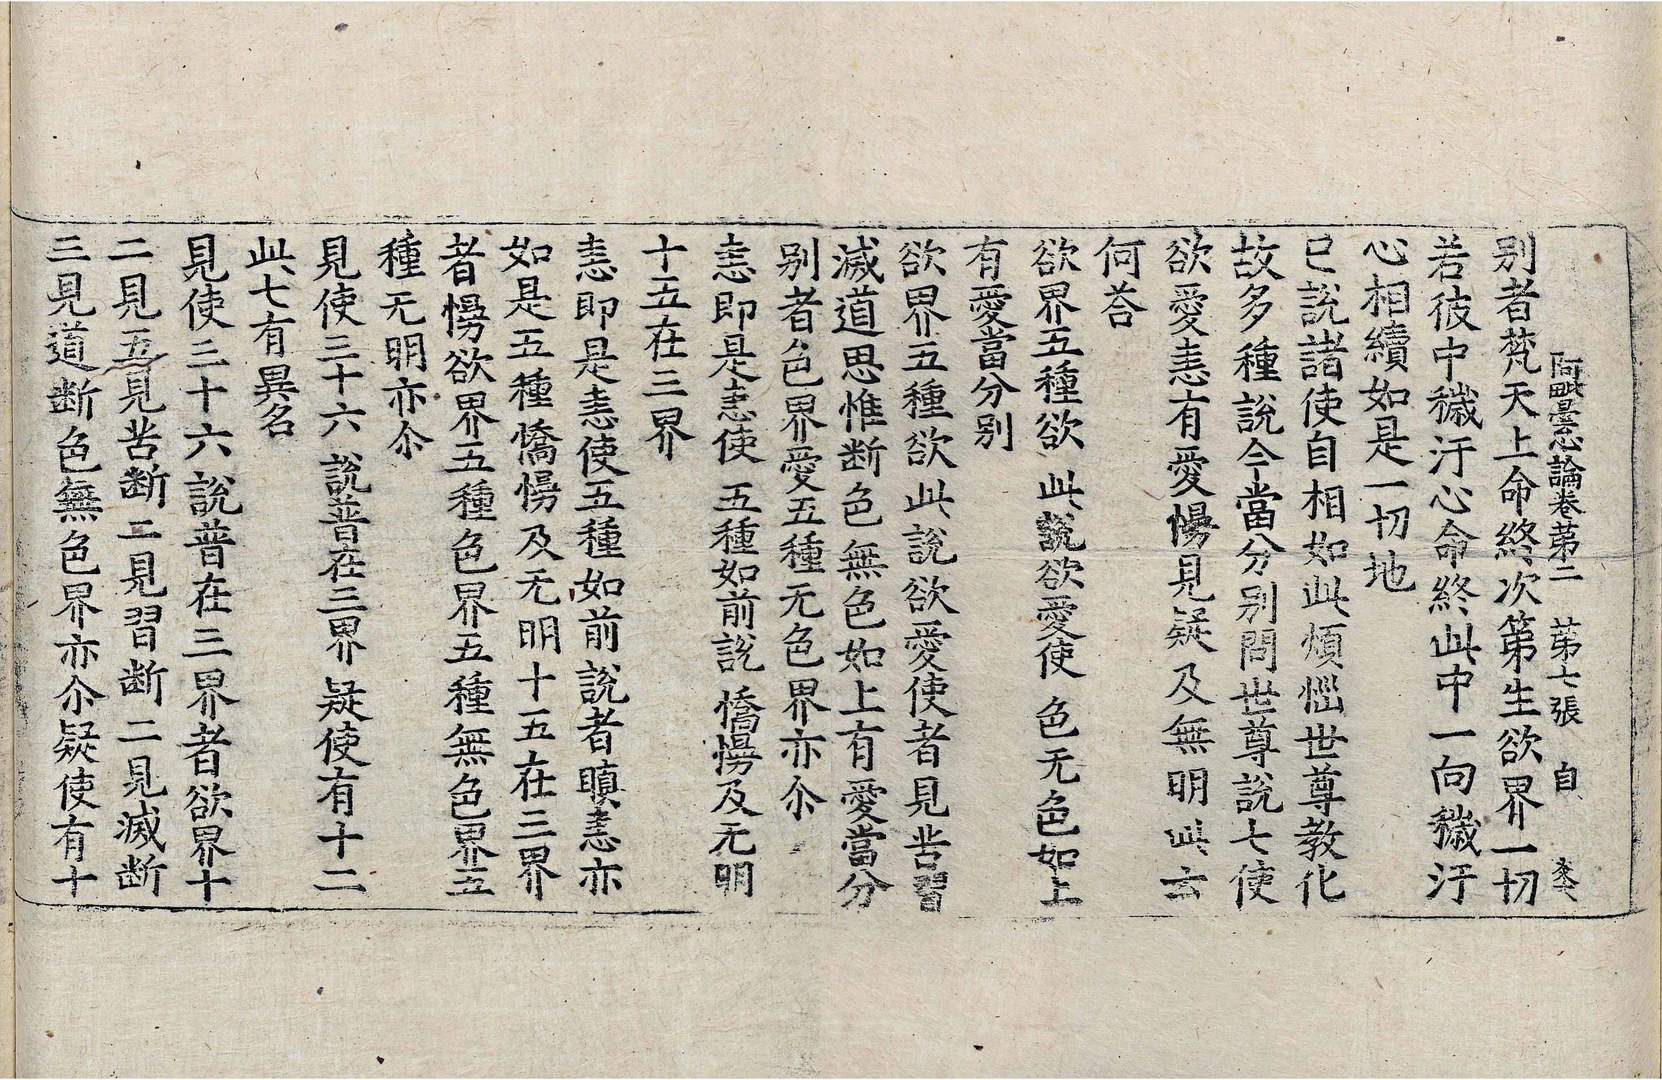 阿毗曇心論卷苐二 苐七張 自
别者梵天上命終次第生欲界一切
若彼中穢汙心命終此中一向穢汙
心相續如是一切地
已說諸使自相如此煩惱世尊教化
故多種說今當分别問世尊說七使
欲愛恚有愛慢見疑及無明此云
何荅
欲界五種欲 此說欲愛使 色无色如上
有愛當分别
欲界五種欲此說欲愛使者見苦習
滅道思惟断色無色如上有愛當分
别者色界愛五種无色界亦尒
恚即是恚使 五種如前說 憍慢及无明
十五在三界
恚即是恚使五種如前說者瞋恚亦
如是五種憍慢及无明十五在三界
者慢欲界五種色界五種無色界五
種无明亦尒
見使三十六 說普在三界 疑使有十二
此七有異名
見使三十六說普在三界者欲界十
二見五見苦断二見習断二見滅断
三見道断色無色界亦尒疑使有十